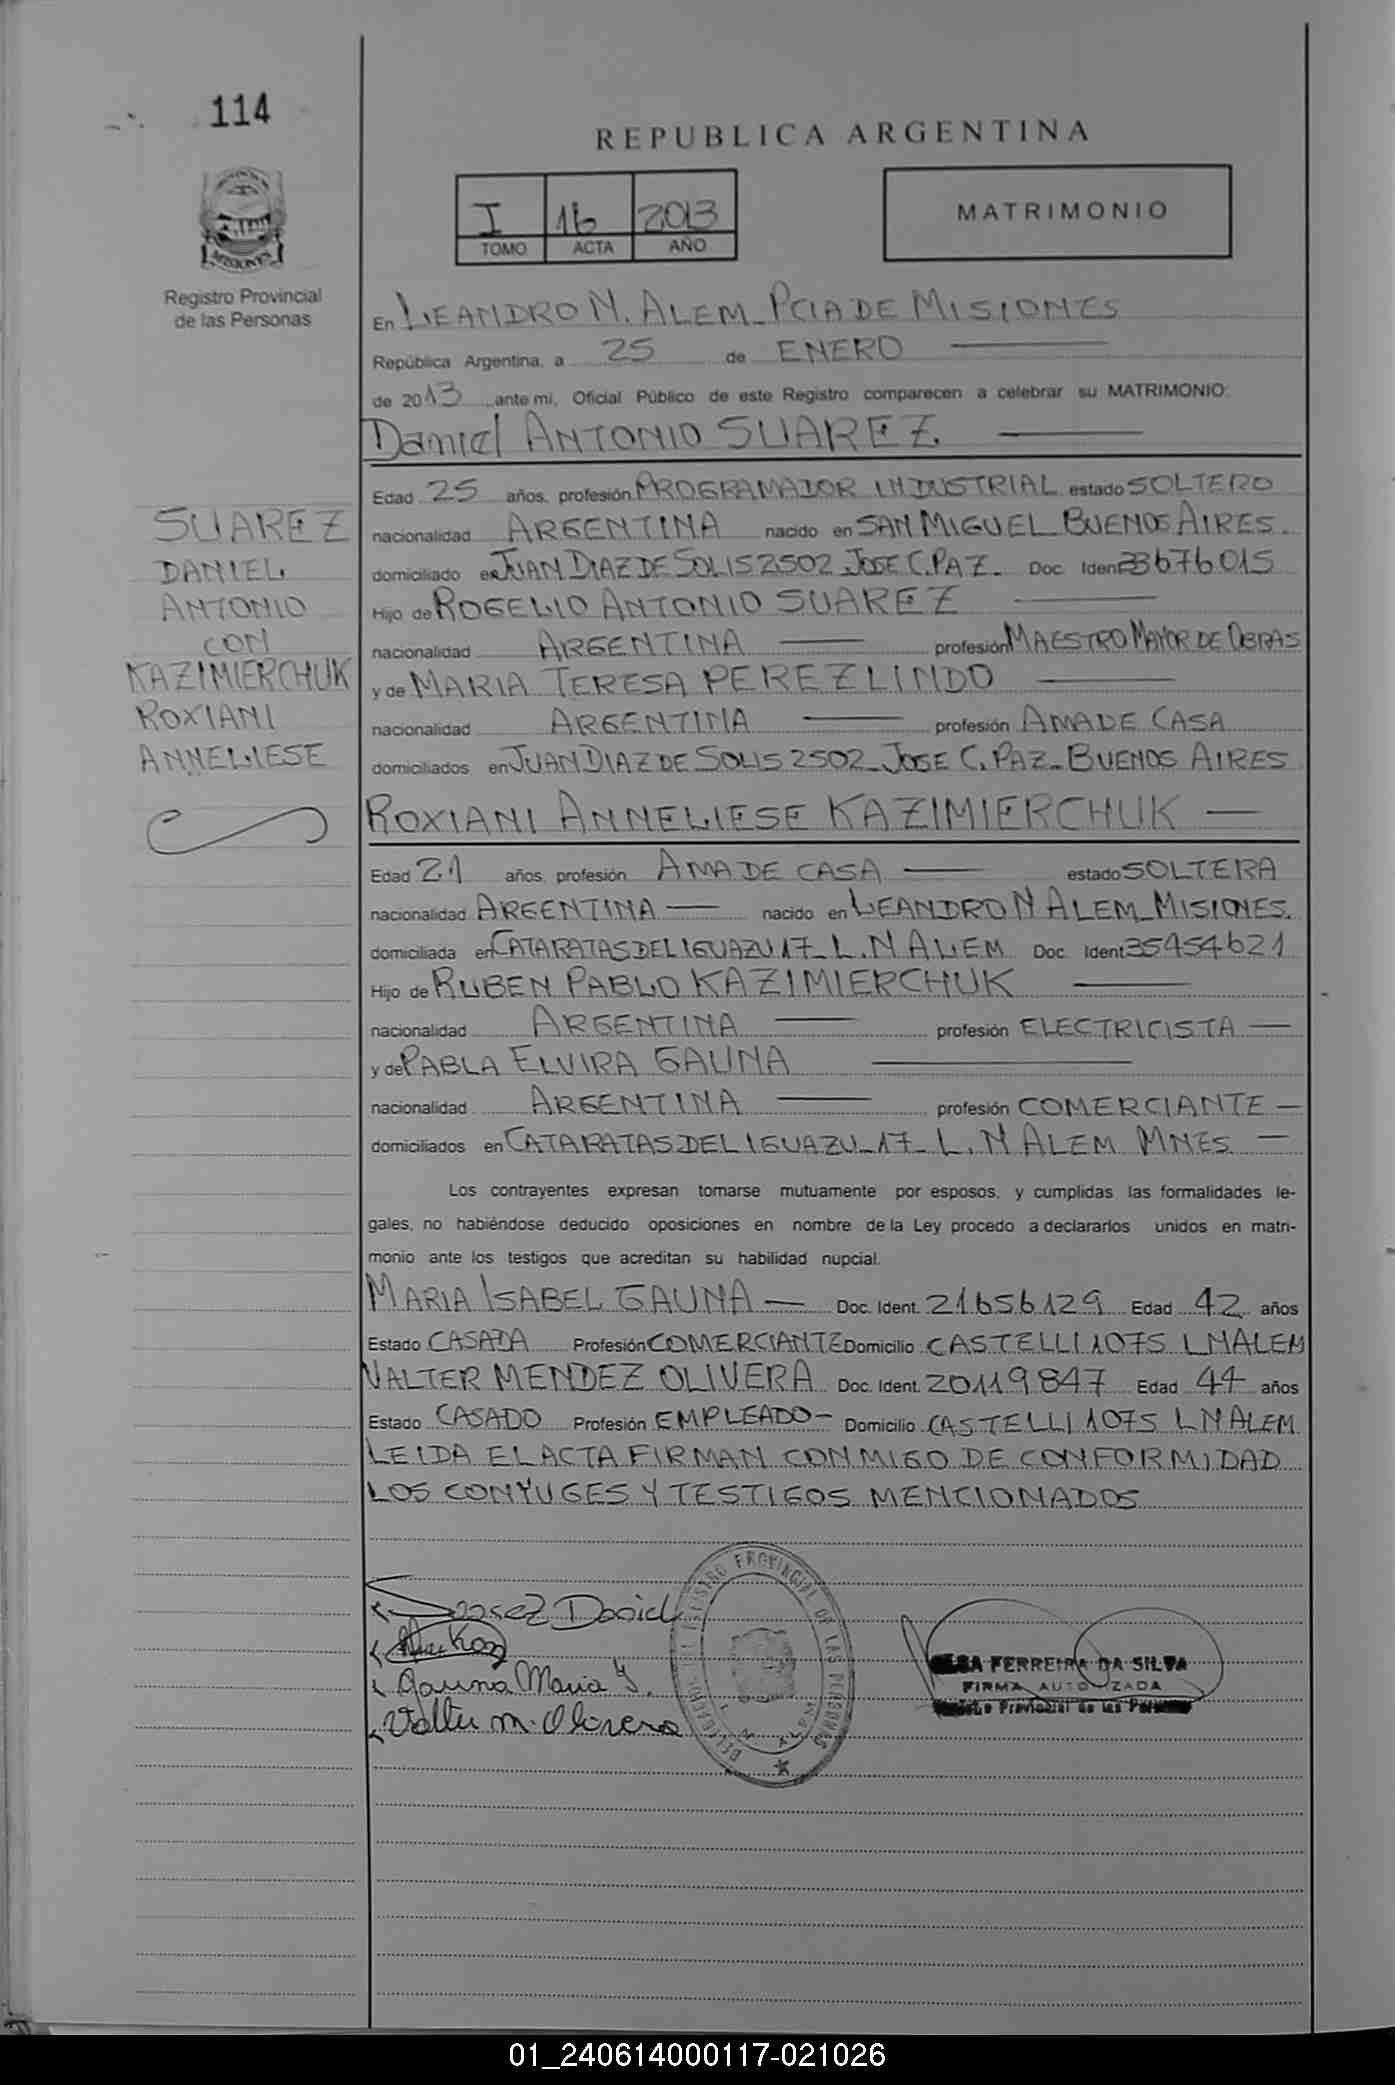 114
REPUBLICA ARGENTINA
I 16 2013
TOMO ACTA AÑO
MATRIMONIO
MISIONES
Registro Provincial
de las Personas
En LEANDRO N. ALEM - PCIA DE MISIONES
República Argentina, a 25 de ENERO
de 2013 ante mi, Oficial Público de este Registro comparecen a celebrar su MATRIMONIO:
Daniel ANTONIO SUAREZ
Edad 25 años, profesión PROGRAMADOR INDUSTRIAL estado SOLTERO
nacionalidad ARGENTINA nacido en SAN MIGUEL BUENOS AIRES.
domiciliado en JUAN DIAZ DE SOLIS 2502 JOSE C. PAZ. Doc. Ident 33676015
Hijo de ROGELIO ANTONIO SUAREZ
nacionalidad ARGENTINA profesión MAESTRO MAYOR DE OBRAS
y de MARIA TERESA PEREZ LINDO
nacionalidad ARGENTINA profesión AMA DE CASA
domiciliados en JUAN DIAZ DE SOLIS 2502 - JOSE C. PAZ - BUENOS AIRES
SUAREZ
DANIEL
ANTONIO
CON
KAZIMIERCHUK
ROXIANI
ANNELIESE
ROXIANI ANNELIESE KAZIMIERCHUK
Edad 21 años, profesión AMA DE CASA estado SOLTERA
nacionalidad ARGENTINA nacido en LEANDRO N ALEM - MISIONES.
domiciliada en CATARATAS DEL IGUAZU 17 - L. N ALEM Doc. Ident 35454621
Hijo de RUBEN PABLO KAZIMIERCHUK
nacionalidad ARGENTINA profesión ELECTRICISTA
y de PABLA ELVIRA GAUNA
nacionalidad ARGENTINA profesión COMERCIANTE
domiciliados en CATARATAS DEL IGUAZU - 17 - L. N ALEM MNES.
Los contrayentes expresan tomarse mutuamente por esposos, y cumplidas las formalidades le-
gales, no habiéndose deducido oposiciones en nombre de la Ley procedo a declararlos unidos en matri-
monio ante los testigos que acreditan su habilidad nupcial.
MARIA ISABEL GAUNA Doc. Ident. 21656129 Edad 42 años
Estado CASADA Profesión COMERCIANTE Domicilio CASTELLI 1075 L N ALEM
VALTER MENDEZ OLIVERA Doc. Ident. 20119847 Edad 44 años
Estado CASADO Profesión EMPLEADO - Domicilio CASTELLI 1075 L N ALEM
LEIDA EL ACTA FIRMAN CONMIGO DE CONFORMIDAD
LOS CONYUGES Y TESTIGOS MENCIONADOS
Suarez Daniel
Gauna Maria I.
Valter M. Olivera
REGISTRO PROVINCIAL DE LAS PERSONAS
FERREIRA DA SILVA
FIRMA AUTORIZADA
Registro Provincial de las Personas
01_240614000117-021026